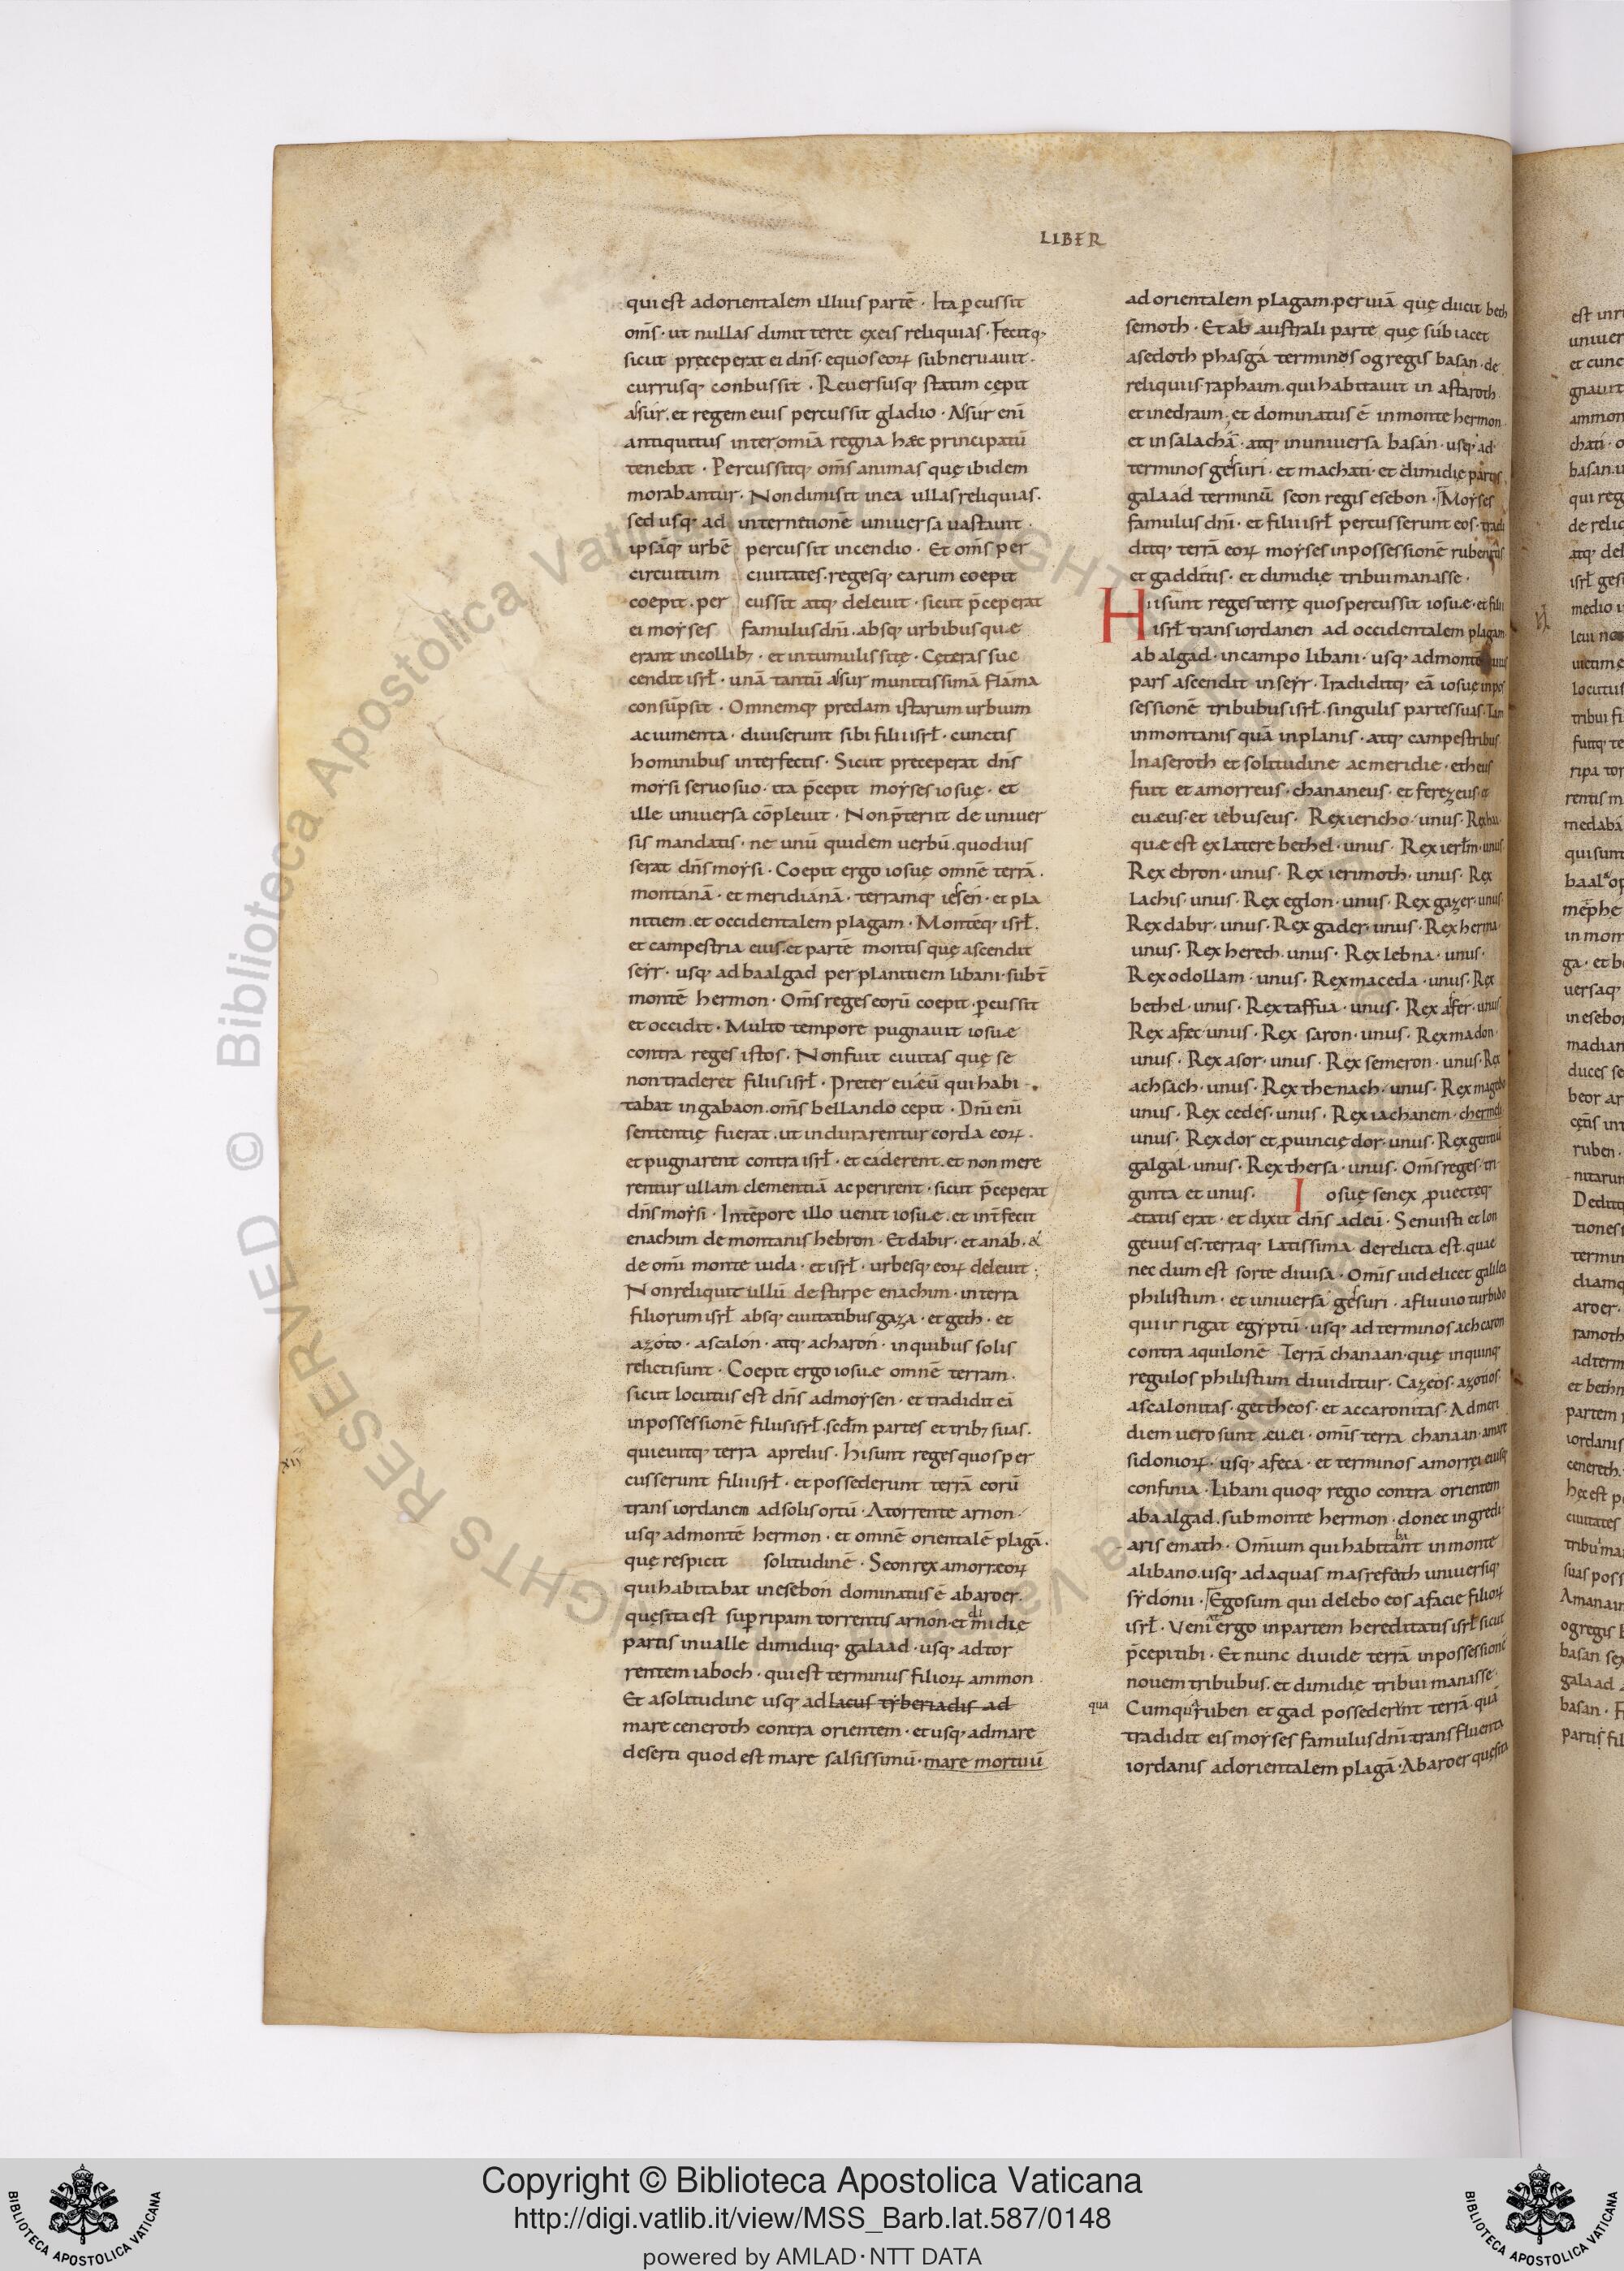 LIBER
qui est ad orientalem illius partē · Ita p̄cussit
om̄s · ut nullas dimitteret ex eis reliquias · Fecitq;
sicut preceperat ei dn̄s · equos eoꝝ subneruauit ·
currusq; conbussit · Reuersusq; statim cępit
assur · et regem eius percussit gladio · Assur eni
antiquitus inter omīa regna hæc principatū
tenebat · Percussitq; om̄s animas quę ibidem
morabantur · Non dimisit in ea ullas reliquias ·
sed usq; ad internitionē uniuersa uastauit ·
ipsāq; urbē percussit incendio · Et om̄s per
circuitum ciuitates · regesq; earum coepit
coepit · per cussit atq; deleuit · sicut p̄ceperat
ei moyses famulus dn̄i · absq; urbibus quæ
erant in collibꝫ · et in tumulis sitę · Cęteras suc
cendit isrł · unā tantū assur munitissimā flāma
consūpsit · Omnemq; predam istarum urbium
ac iumenta · diuiserunt sibi filii isrł · cunctis
hominibus interfectis · Sicut preceperat dn̄s
moysi seruo suo · ita p̄cepit moyses iosuę · et
ille uniuersa cōpleuit · Non p̄teriit de uniuer
sis mandatis · ne unū quidem uerbū · quod ius
serat dn̄s moysi · Coepit ergo iosuę omnē terrā ·
montanā · et meridianā · terramq; iessen · et pla
nitiem · et occidentalem plagam · Montēq; isrł ·
et campestria eius · et partē montis quę ascendit
seyr · usq; ad baalgad per planitiem libani · subt̄
montē hermon · Om̄s reges eorū coepit · p̄cussit
et occidit · Multo tempore pugnauit iosuæ
contra reges istos · Non fuit ciuitas quę se
non traderet filiis isrł · Preter eueū qui habi
tabat in gabaon · om̄s bellando cepit · Dn̄i eni
sententię fuerat · ut indurarentur corda eoꝝ ·
et pugnarent contra isrł · et caderent · et non mere
rentur ullam clementiā ac perirent · sicut p̄ceperat
dn̄s moysi · In tēpore illo uenit iosuæ · et int̄fecit
enachim de montanis hebron · Et dabir · et anab · &
de om̄i monte iuda · et isrł · urbesq; eoꝝ deleuit ;
Non reliquit ullū de stirpe enachim · in terra
filiorum isrł absq; ciuitatibus gaza · et geth · et
azoto · ascalon · atq; acharon · in quibus solis
relicti sunt · Coepit ergo iosuæ omnē terram ·
sicut locutus est dn̄s ad moysen · et tradidit eā
in possessionē filiis isrł · sedm̄ partes et tribꝫ suas ·
quieuitq; terra a prelius · Hi sunt reges quos per
XII
cusserunt filii isrł · et possederunt terrā eorū
trans iordanem ad solis ortū · A torrente arnon ·
usq; ad montē hermon · et omnē orientalē plagā ·
quę respicit solitudinē · Seon rex amorræoꝝ
qui habitabat in esebon dominatus ē ab aroer ·
quę sita est sup ripam torrentis arnon · et dimidię
partis in ualle dimidiiq; galaad · usq; ad tor
rentem iaboch · qui est terminus filioꝝ ammon ·
Et a solitudine usq; ad lacus tyberiadis ad
mare ceneroth contra orientem · et usq; ad mare
deserti quod est mare salsissimū · mare mortuū
ad orientalem plagam · per uiā quę ducit beth
semoth · Et ab australi parte quę subiacet
asedoth phasga terminos og regis basan · de
reliquiis raphaim · qui habitauit in astaroth
et in edraim · et dominatus ē in monte hermon
et in salachā · atq; in uniuersa basan · usq; ad
terminos gessuri · et machati · et dimidię partis
galaad terminū seon regis esebon · Moyses
famulus dn̄i · et filii isrł percusserunt eos · tradi
ditq; terrā eoꝝ moyses in possessionē rubenitis
et gadditis · et dimidię tribui manasse ·
Hii sunt reges terrę quos percussit iosu.e · et filii
isrł trans iordanen ad occidentalem plagam
ab algad · in campo libani · usq; ad montē cuius
pars ascendit in seyr · Tradiditq; eā iosuę in pos
sessionē tribubus isrł · singulis partes suas · Tam
in montanis quā in planis · atq; campestribus
In aseroth et solitudine ac meridie · etheus
fuit et amorreus · chananeus · et ferezeus · &
eu.eus · et iebuseus · Rex iericho · unus · Rex hai ·
quæ est ex latere bethel · unus · Rex ierłm · unus
Rex ebron · unus · Rex ierimoth · unus · Rex
lachis · unus · Rex eglon · unus · Rex gazer · unus
Rex dabir · unus · Rex gader · unus · Rex herma ·
unus · Rex hereth · unus · Rex lebna · unus ·
Rex odollam · unus · Rex maceda · unus · Rex
bethel · unus · Rex taffua · unus · Rex affer · unus
Rex afec · unus · Rex saron · unus · Rex madon ·
unus · Rex asor · unus · Rex semeron · unus · Rex
achsach · unus · Rex thenach · unus · Rex magedo
unus · Rex cedes · unus · Rex iachanem · chermeli
unus · Rex dor et puincię dor · unus · Rex gentiū
galgal · unus · Rex thersa · unus · Om̄s reges · tri
ginta et unus · Iosuę senex puectęq;
ætatis erat · et dixit dn̄s ad eū · Senuisti et lon
geuus es · terraq; latissima derelicta est · quae
nec dum est sorte diuisa · Om̄is uidelicet galilea
philistiim · et uniuersa gessuri · a fluuio turbido
qui irrigat egyptū · usq; ad terminos achcaron
contra aquilonē Terrā chanaan · quę in quinq;
regulos philistiim diuiditur · Gazeos · azotios ·
ascalonitas · gettheos · et accaronitas · Ad meri
diem uero sunt .eu.ei · om̄is terra chanaan · amare
sidonioꝝ · usq; afeca · et terminos amorręi eiusq;
confinia · Libani quoq; regio contra orientem
a baalgad · sub monte hermon · donec ingredi
aris emath · Om̄ium qui habitabant in monte
a libano · usq; ad aquas masrefoth uniuersiq;
sydonii · Ego sum qui delebo eos a facie filioꝝ
isrł · Veniat ergo in partem hereditatis isrł sicut
p̄cepi tibi · Et nunc diuide terrā in possessionē
nouem tribubus · et dimidię tribui manasse ·
qua
Cum qua ruben et gad possederunt terrā · quā
tradidit eis moyses famulus dn̄i · trans fluenta
iordanis ad orientalem plagā · Ab aroer quę sita
Copyright © Biblioteca Apostolica Vaticana
http://digi.vatlib.it/view/MSS_Barb.lat.587/0148
powered by AMLAD·NTT DATA
BIBLIOTECA APOSTOLICA VATICANA
BIBLIOTECA APOSTOLICA VATICANA